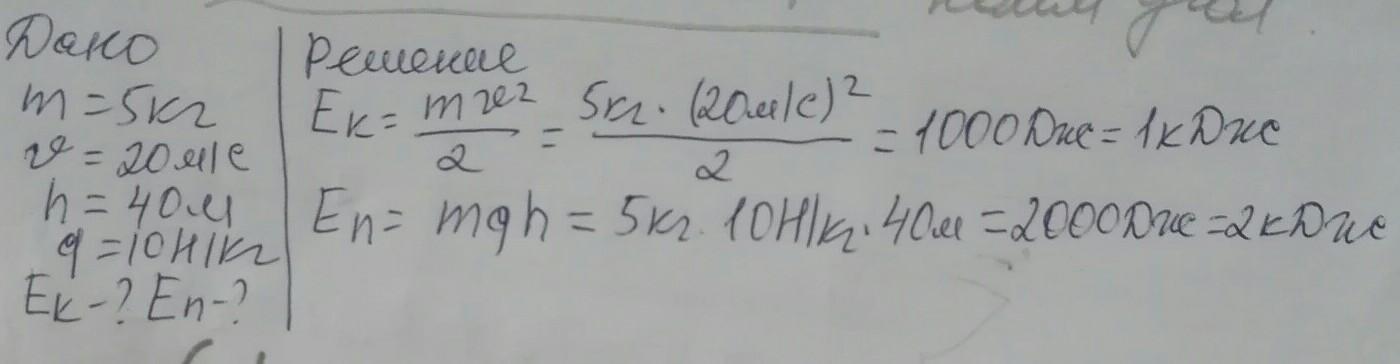 Дано
m = 5кг
v = 20м/с
h = 40м
g = 10Н/кг
Eк - ? Eп - ?
Решение
Eк = mv²/2 = 5кг · (20м/с)²/2 = 1000Дж = 1кДж
Eп = mgh = 5кг · 10Н/кг · 40м = 2000Дж = 2кДж